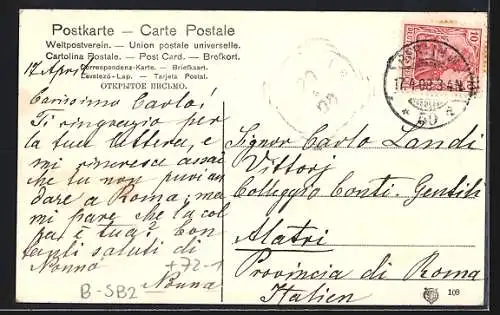 Postkarte — Carte Postale
Weltpostverein. — Union postale universelle.
Cartolina Postale. — Post Card. — Brefkort.
Correspondenz-Karte. — Briefkaart.
Levelező-Lap. — Tarjeta Postal.
ОТКРЫТОЕ ПИСЬМО.
17 April
Carissimo Carlo!
Ti ringrazio per
la tua lettera, e
mi rincresce assai
che tu non puoi an
dare a Roma; ma
mi pare che la col
pa è tua? Con
tanti saluti di
Nonno
Nonna
+72-1
B-SB2
Signor Carlo Landi
Vittorj
Colleggio Conti-Gentili
Alatri
Provincia di Roma
Italien
108
10
17.4.09.3-4N.
* 50 *